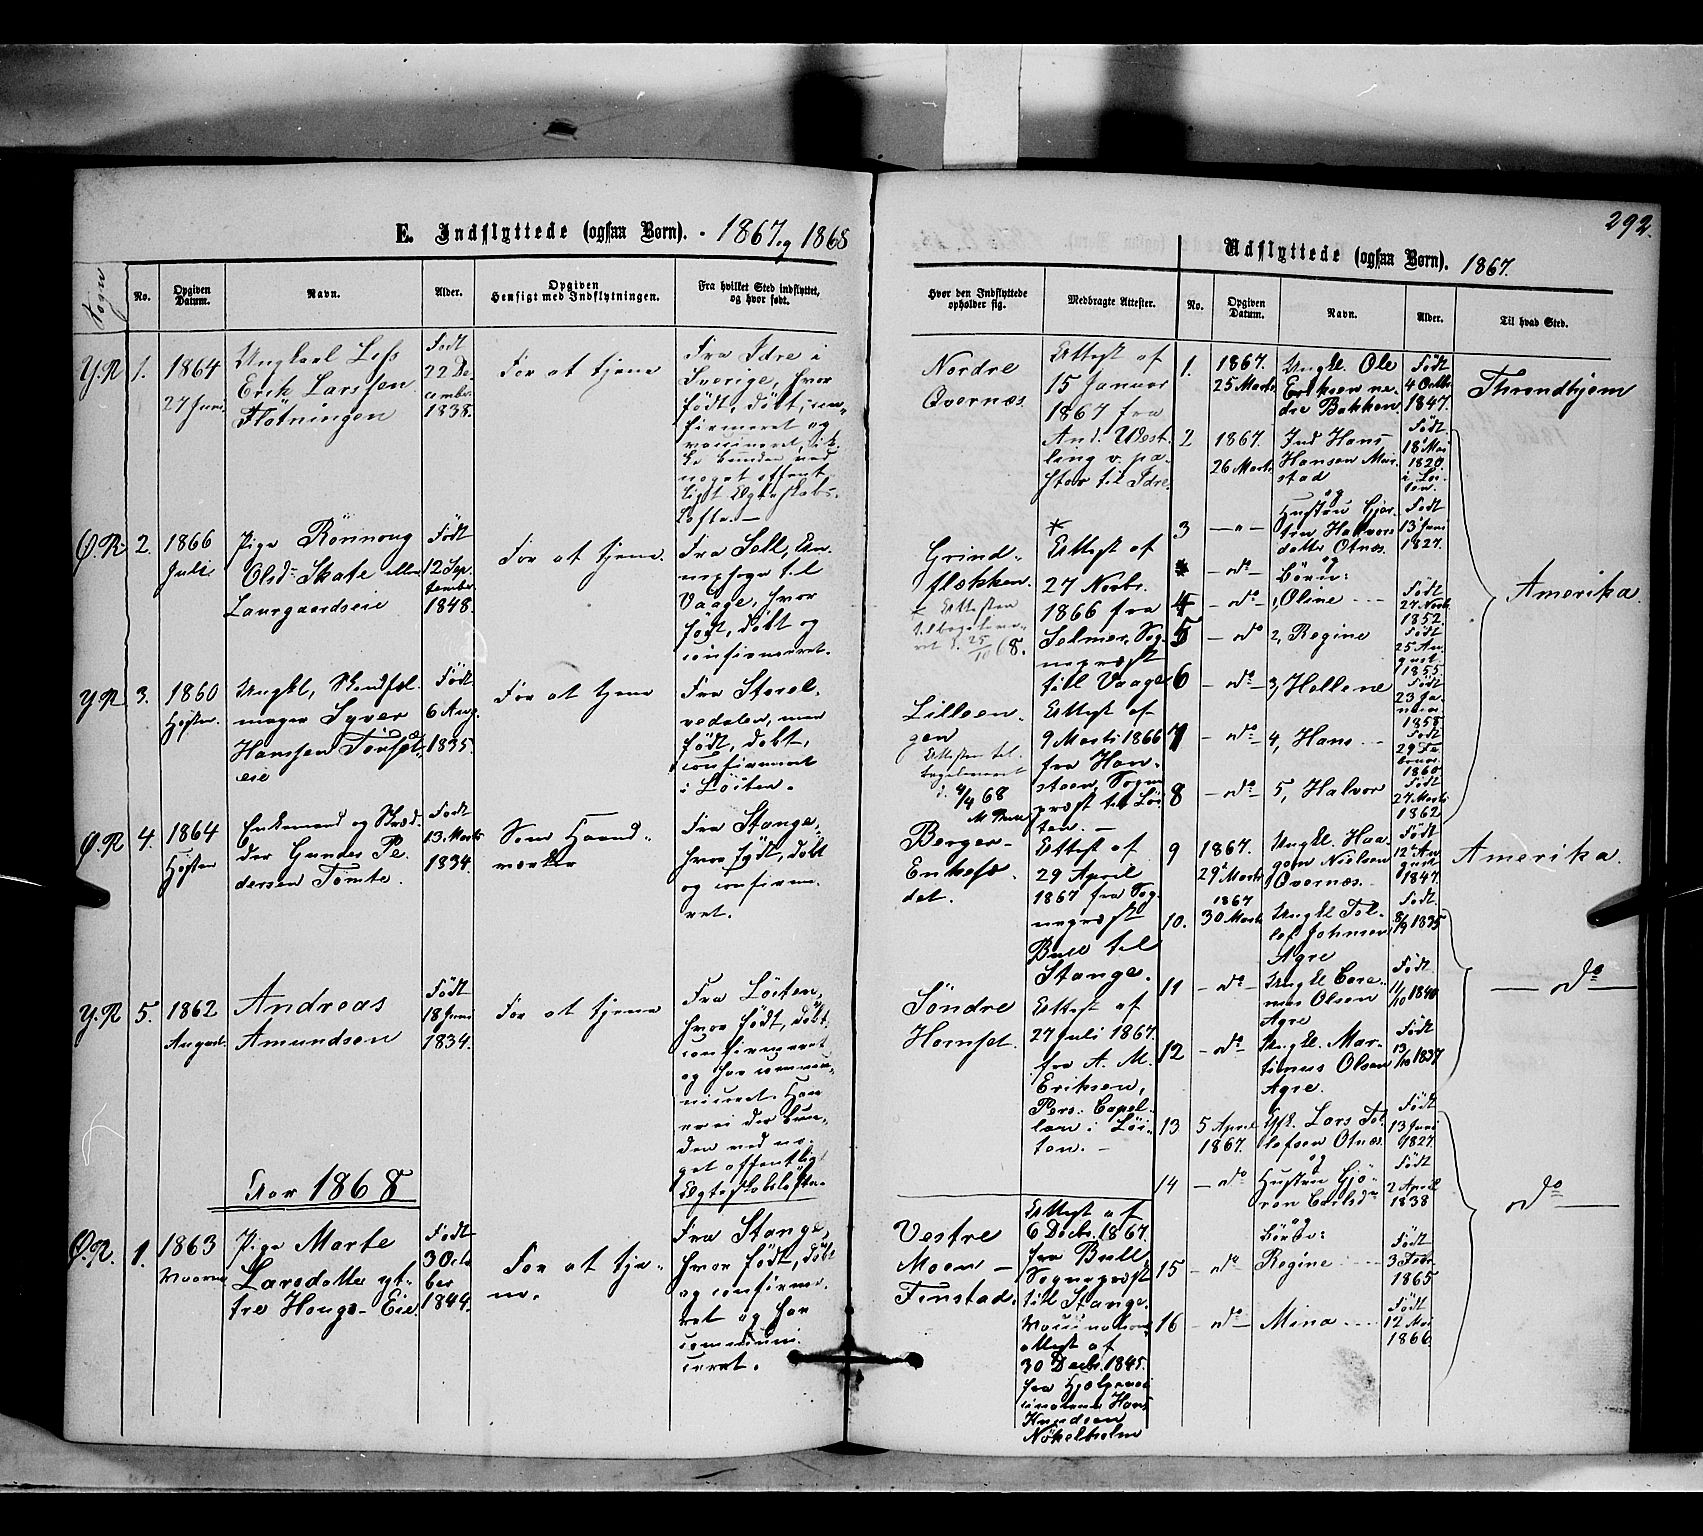 292.
E. Indflyttede (ogsaa Børn). 1867 og 1868
Udflyttede (ogsaa Børn). 1867.
Sogn
No.
Opgiven Datum.
Navn.
Alder.
Opgiven
Hensigt med Indflytningen.
Fra hvilket Sted indflyttet,
og hvor født.
Hvor den Indflyttede
opholder sig.
Medbragte Attester.
Y.R 1.
1864
27 Juni
Ungkarl
Erik Larssen
Flötningen
Født
22 De-
cembr.
1838.
For at tjene
Fra Idre i
Sverige, hvor
født, döbt, con-
firmeret og
vaccineret, ik-
ke bunden ved
noget offent-
ligt Egteskabs-
Löfte. —
Nordre
Qvernæs
Attest af
15 Januar
1867 fra
And. West-
ling v. pa-
stor til Idre.
Ø.R. 2.
1866
Julie
Pige Rönnoug
Olsd. Skate eller
Laurgaardseie
Født
12 Sep-
tember
1848.
For at tjene.
Fra Sell, An-
nexsogn til
Vaage, hvor
født, döbt og
confirmeret.
Grind-
flækken.
Attesten
tilbageleve-
ret d. 25/10 68.
*
Attest af
27 Novbr.
1866 fra
Selmer, Sog-
nepræst
till Vaage
Y.R 3.
1860
Høsten.
Ungkl,
mager Syver
Hanssen Tönset-
eie
Født
6 Aug.
1835.
For at tjene
Fra Storel-
vedalen, men
født, döbt,
confirmeret
i Löiten.
Lilleen-
gen
Attesten til-
bageleveret
d. 4/4 68
Attest af
9 Marts 1866
fra Han-
steen, Sogne-
præst til Löi-
ten. —
Ø.R 4.
1864
Høsten
Enkemand og Skræd-
der Gunder Pe-
dersen Tomte.
Født
13. Marts
1834.
Som Haand-
værker
Fra Stange,
hvor født, döbt
og confirme-
ret.
Berger-
Enkesæ-
det.
Attest af
29 April
1867 fra Sog-
nepræst
Bull til
Stange.
Y.R 5.
1862
August
Andreas
Amundsen
Født
18 Juni
1834.
For at tjene
Fra Löiten,
hvor født, döbt,
confirmeret
og har commu-
niceret. Han
er ei der bun-
den ved no-
get offentligt
Egteskabslöfte.
Söndre
Hornset.
Attest af
27 Juli 1867.
fra A. M.
Eriksen,
Pers. Capel-
lan i Löi-
ten. —
For 1868
Ø.R. 1.
1863
Pige Marte
Larsdatter yt-
tre Hougs-Eie
Født
3 Octo-
ber
1844.
For at tje-
ne.
Fra Stange,
hvor født, döbt
og confirme-
ret og har
communi-
ceret.
Vestre
Moen —
Finstad.
Attest af
6 Decbr. 1867.
fra Bull
Sognepræst
till Stange.
Vaccinations-
attest af
30 Decbr. 1845.
fra Hjelpevac-
cinateur Hans
Knudsen
Nökelholm
No.
Opgiven Datum.
Navn.
Alder.
Til hvad Sted.
1.
1867.
25 Marts
Ungkl. Ole
Eriksen ne-
dre Bakken
Født
4 Octbr.
1847.
Throndhjem
2
1867.
26 Marts
Ind Hans
Hansen Mar-
stad
Født
18 Mai
1820
i Löi-
ten.
Amerika.
3
— " —
og
Hustru Gjer-
tru Halvors-
datter Otnæs.
Født
13 Juni
1827.
— do —
og
Børn:
4
— do —
1, Oline
Født
27 Novb.
1852.
5
— do
2, Regine
Født
25 Au-
gust
1855
6
— do —
3, Hellene
Født
23 Ja-
nuar
1858
7
— do —
4, Hans
Født
29 Fe-
bruar
1860
8
— do —
5, Halvor
Født
27 Marts
1862
9
1867.
29 Marts
Ungkl. Haa-
gen Nielsen
Qvernæs.
Født
12 Au-
gust
1847.
Amerika.
10.
1867
30 Marts
Ungkl Tol-
lef Johnsen
Agre
Født
8/9 1835
— do —
11
— do —
Ungkl Core-
nus Olsen
Agre
Født
11/10 1840
12
— do —
Ungkl. Mar-
tinus Olsen
Agre
Født
13/10 1837
13
5 April
1867.
Lars Tol-
lefsen Otnæs.
Født
13 Juni
1827.
do —
14
— do
og
Hustru Gjö-
ron
Født
2 April
1838
og
Børn:
15
— do —
Regine
Født
3 Febr.
1865
16
— do —
Mina
Født
12 Mai
1866